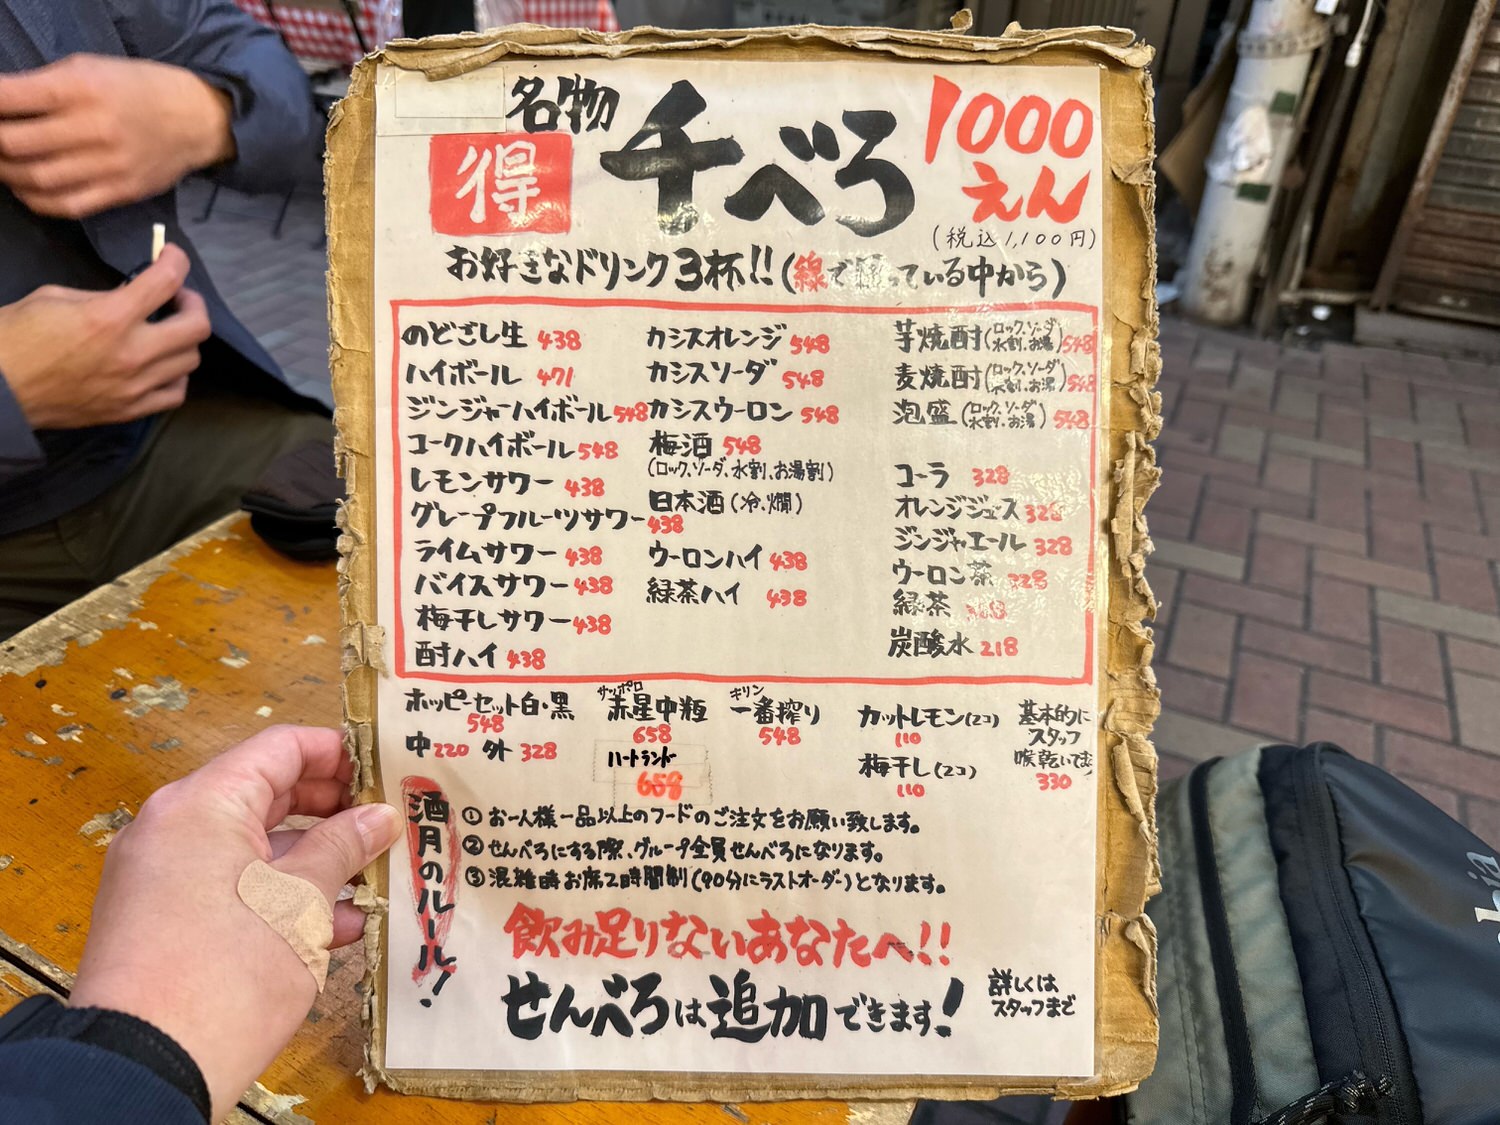 名物
得
千べろ
1000
えん
(税込1,100円)
お好きなドリンク3杯!!(線で囲っている中から)
のどごし生 438
ハイボール 471
ジンジャーハイボール 548
コークハイボール 548
レモンサワー 438
グレープフルーツサワー 438
ライムサワー 438
バイスサワー 438
梅干しサワー 438
酎ハイ 438
カシスオレンジ 548
カシスソーダ 548
カシスウーロン 548
梅酒 548
(ロック、ソーダ、水割、お湯割)
日本酒(冷、燗)
ウーロンハイ 438
緑茶ハイ 438
芋焼酎(ロック、ソーダ 水割、お湯) 548
麦焼酎(ロック、ソーダ 水割、お湯) 548
泡盛(ロック、ソーダ 水割、お湯) 548
コーラ 328
オレンジジュース 328
ジンジャエール 328
ウーロン茶 328
緑茶
炭酸水 218
ホッピーセット白・黒
548
中220 外 328
サッポロ
赤星中瓶
658
ハートランド
658
キリン
一番搾り
548
カットレモン(2コ)
110
梅干し(2コ)
110
基本的に
スタッフ
喉乾いてます
330
酒月のルール!
① お一人様一品以上のフードのご注文をお願い致します。
② せんべろにする際、グループ全員せんべろになります。
③ 混雑時お席2時間制(90分にラストオーダー)となります。
飲み足りないあなたへ!!
せんべろは追加できます!
詳しくは
スタッフまで